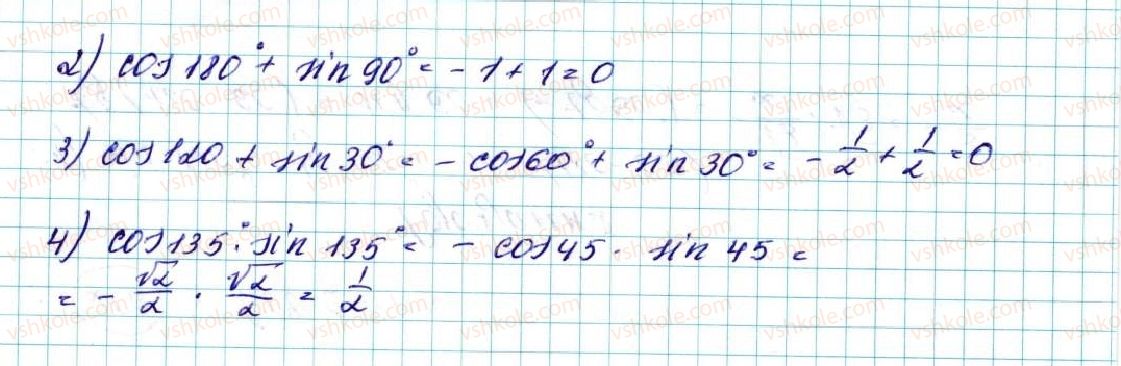 2) cos 180° + sin 90° = - 1 + 1 = 0
3) cos 120 + sin 30° = - cos 60° + sin 30° = - 1/2 + 1/2 = 0
4) cos 135° · sin 135° = - cos 45 · sin 45 =
= - √2/2 · √2/2 = 1/2